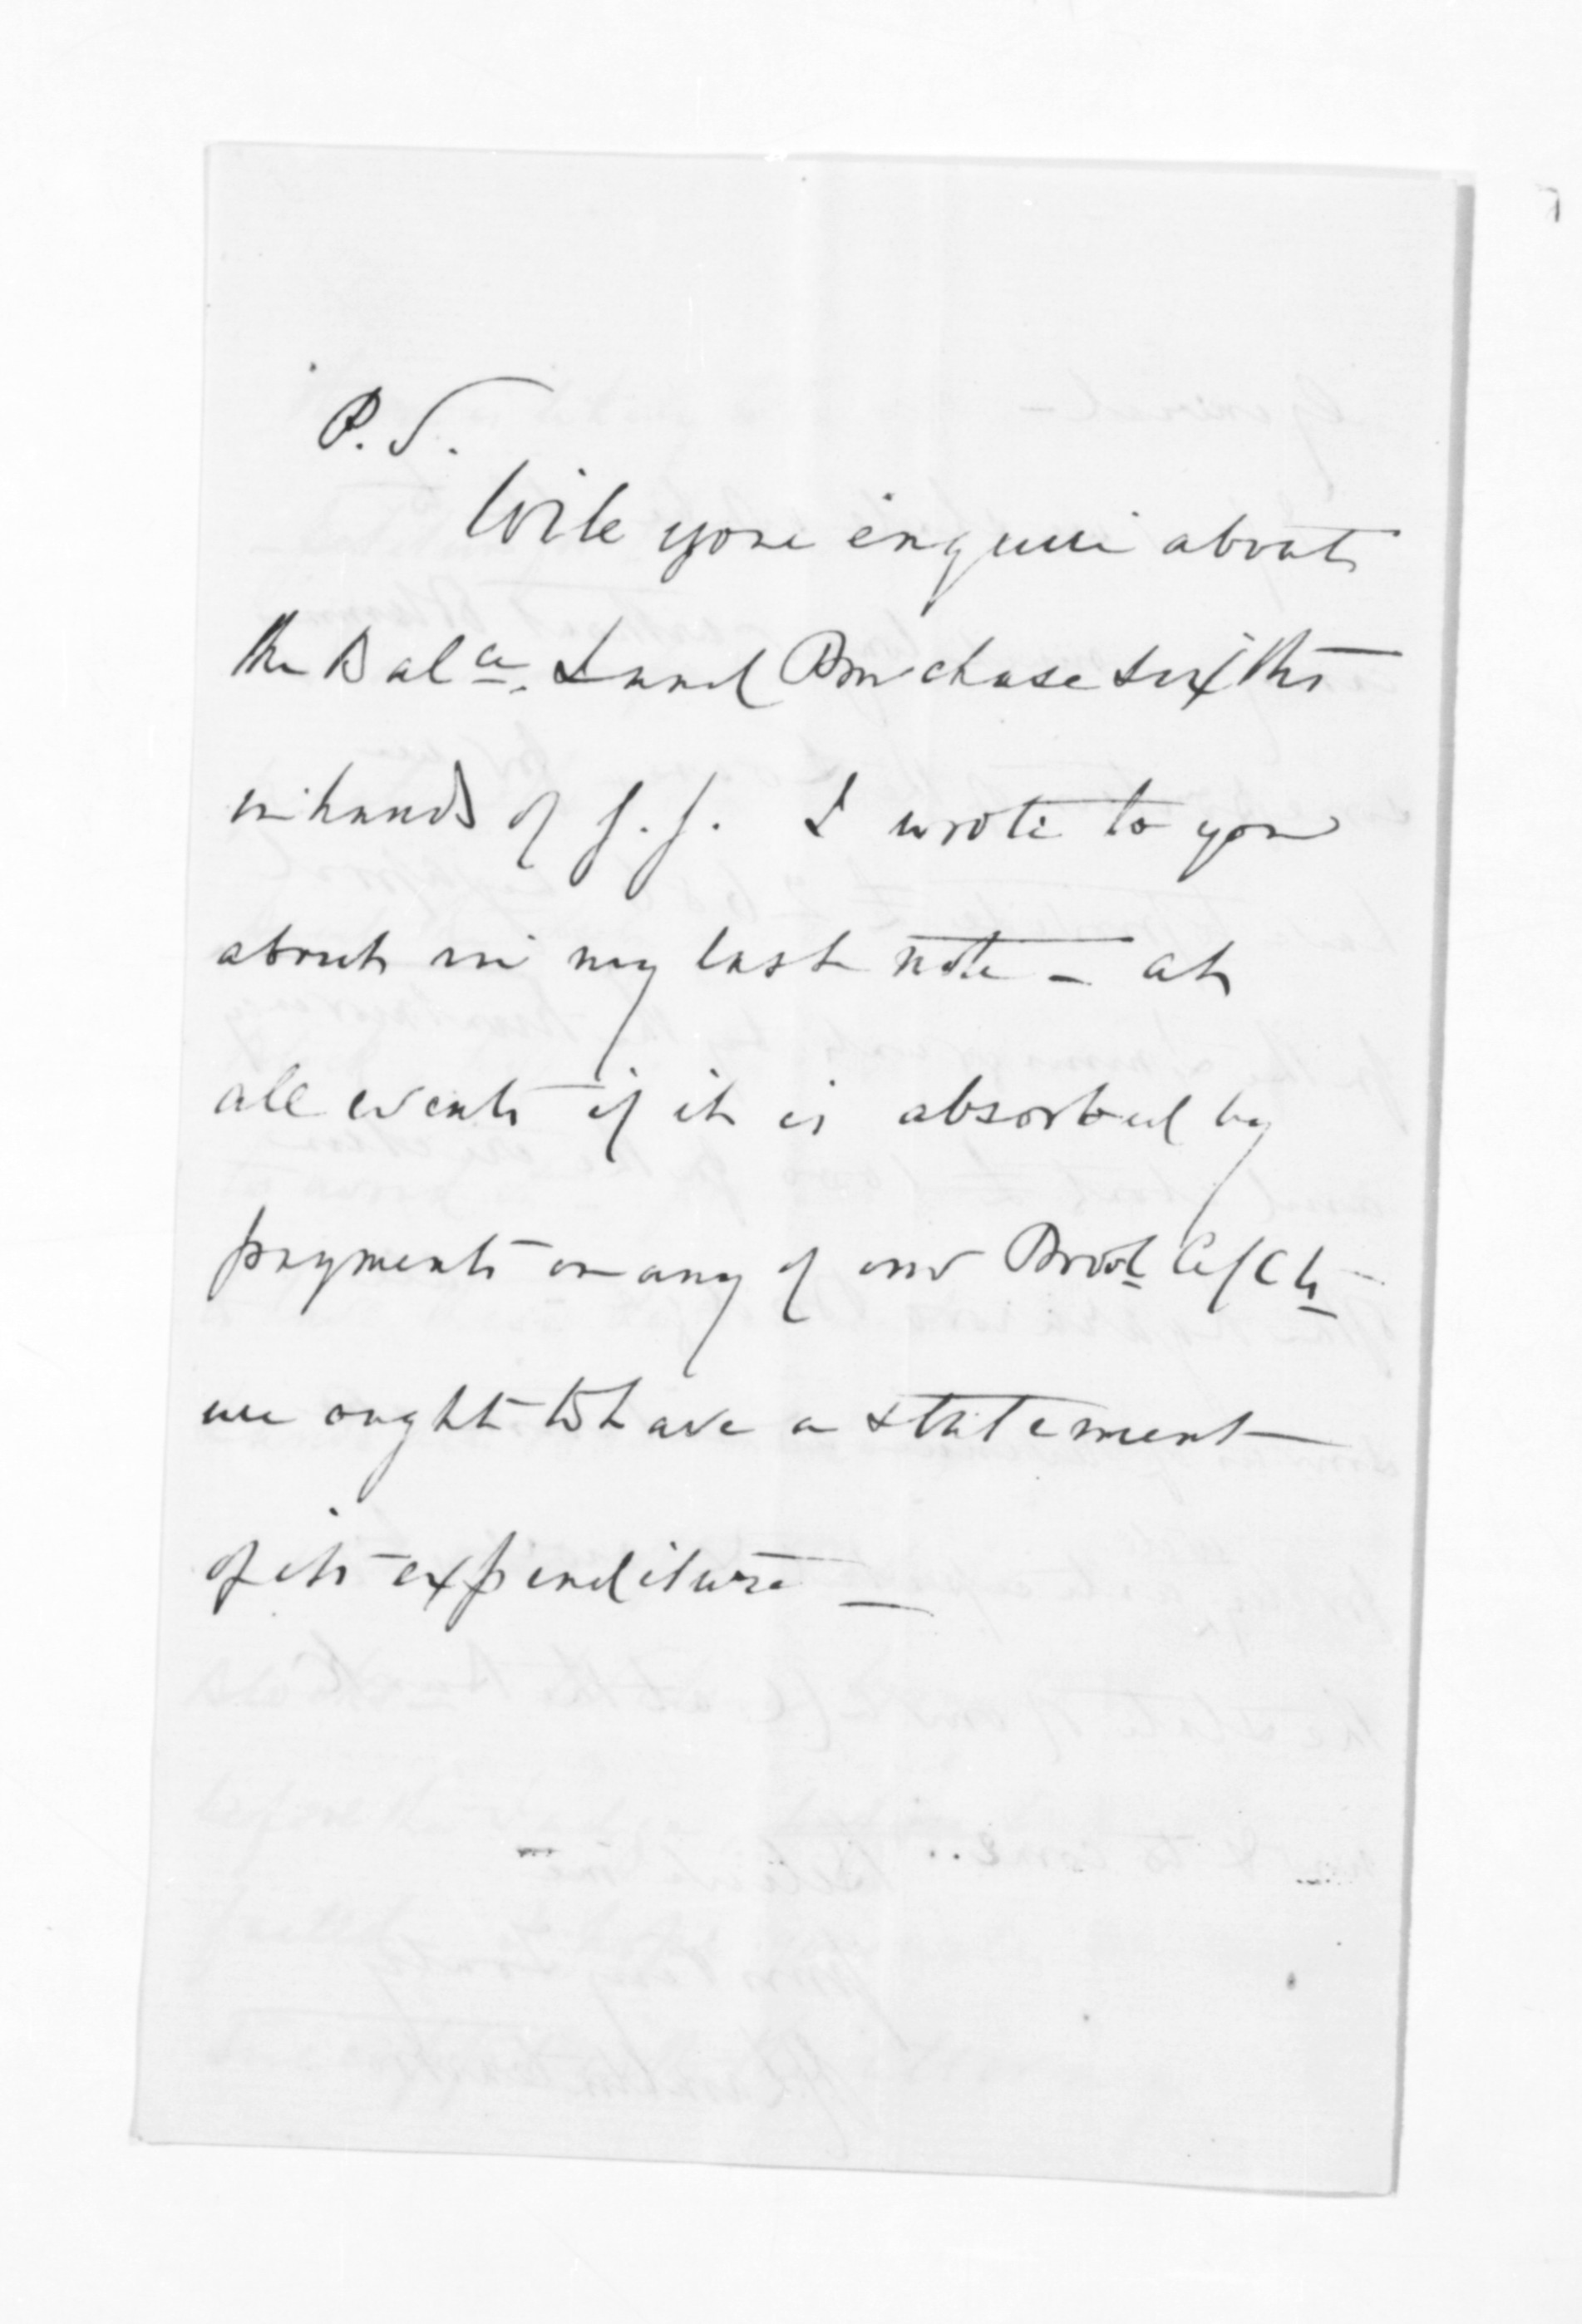 P.S.
Will you enquire about
the Balce. Land Purchase sixths
in hands of G.G. I wrote to you
about in my last note - at
all events if it is absorbed by
payments on any of our Provl A/Cts
we ought to have a statement
of its expenditure -